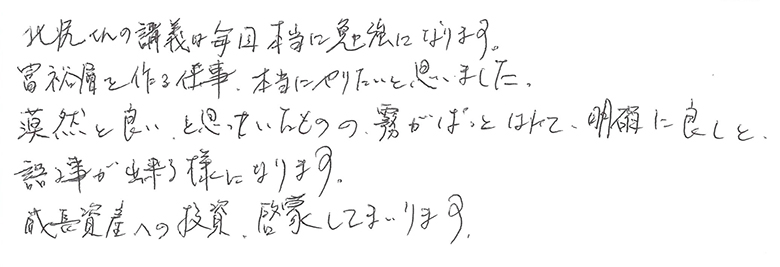 北尻さんの講義は毎回本当に勉強になります。
富裕層を作る仕事、本当にやりたいと思いました。
漠然と良い、と思っていたものの、霧がぱっとはれて、明確に良しと、
語る事が出来る様になります。
成長資産への投資、啓蒙してまいります。